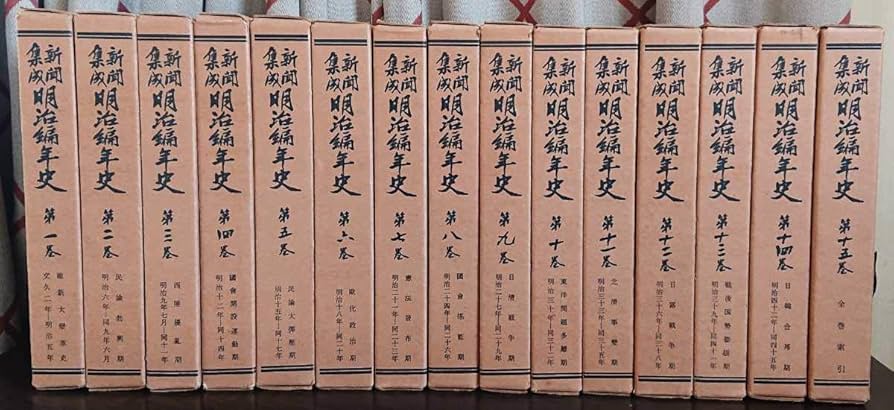 新聞集成 明治編年史 第一卷
維新大變革史
文久二年―明治五年
新聞集成 明治編年史 第二卷
民論勃興期
明治六年―同九年六月
新聞集成 明治編年史 第三卷
西陲擾亂期
明治九年七月―同十一年
新聞集成 明治編年史 第四卷
國會開設運動期
明治十二年―同十四年
新聞集成 明治編年史 第五卷
民論大彈壓期
明治十五年―同十七年
新聞集成 明治編年史 第六卷
歐化政治期
明治十八年―同二十年
新聞集成 明治編年史 第七卷
憲法發布期
明治二十一年―同二十三年
新聞集成 明治編年史 第八卷
國會搖籃期
明治二十四年―同二十六年
新聞集成 明治編年史 第九卷
日淸戰爭期
明治二十七年―同二十九年
新聞集成 明治編年史 第十卷
東洋問題多難期
明治三十年―同三十二年
新聞集成 明治編年史 第十一卷
北淸事變期
明治三十三年―同三十五年
新聞集成 明治編年史 第十二卷
日露戰爭期
明治三十六年―同三十八年
新聞集成 明治編年史 第十三卷
戰後國勢膨脹期
明治三十九年―同四十一年
新聞集成 明治編年史 第十四卷
日韓合邦期
明治四十二年―同四十五年
新聞集成 明治編年史 第十五卷
全卷索引